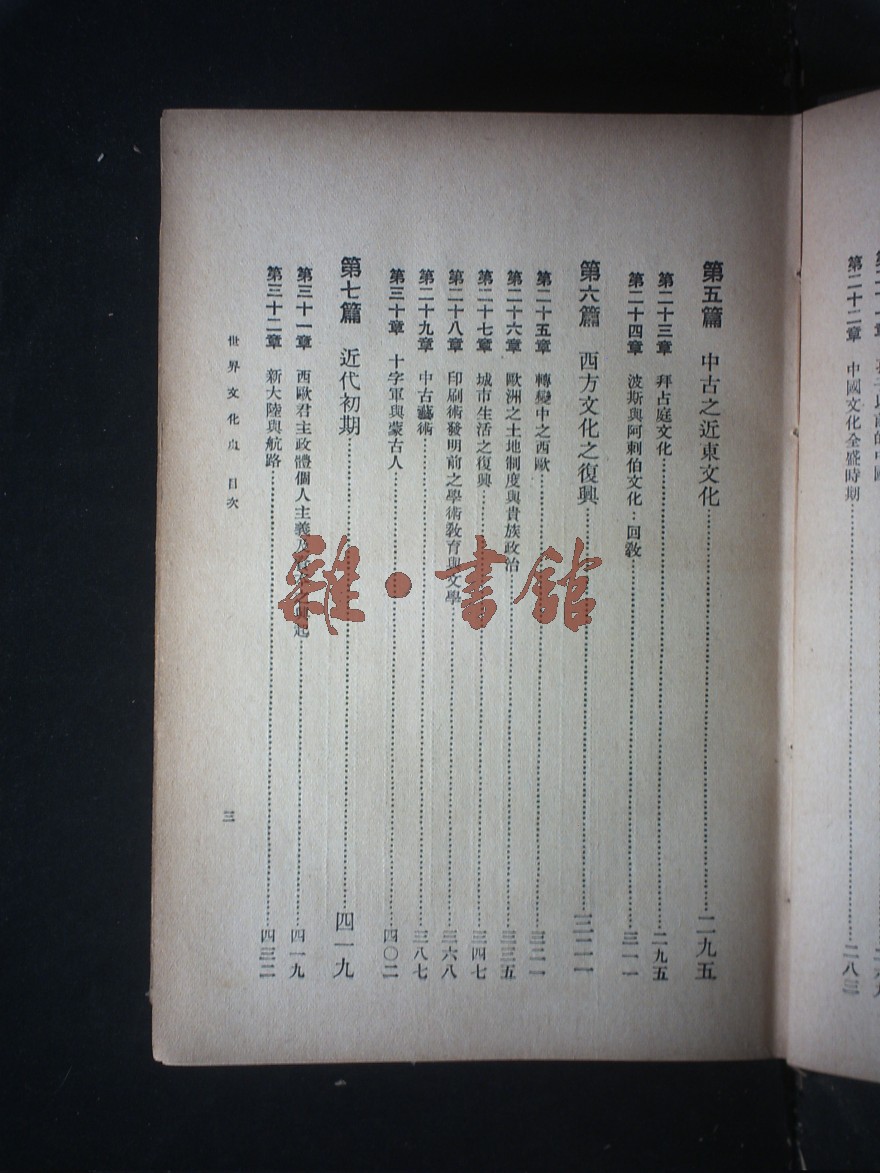 第二十二章 中國文化全盛時期……二八三
第五篇 中古之近東文化……二九五
第二十三章 拜占庭文化……二九五
第二十四章 波斯與阿剌伯文化：回教……三一一
第六篇 西方文化之復興……三二一
第二十五章 轉變中之西歐……三二一
第二十六章 歐洲之土地制度與貴族政治……三三五
第二十七章 城市生活之復興……三四七
第二十八章 印刷術發明前之學術教育與文學……三六八
第二十九章 中古藝術……三八七
第三十章 十字軍與蒙古人……四〇二
第七篇 近代初期……四一九
第三十一章 西歐君主政體個人主義及 起……四一九
第三十二章 新大陸與航路……四三二
世界文化史 目次
三
雜·書館